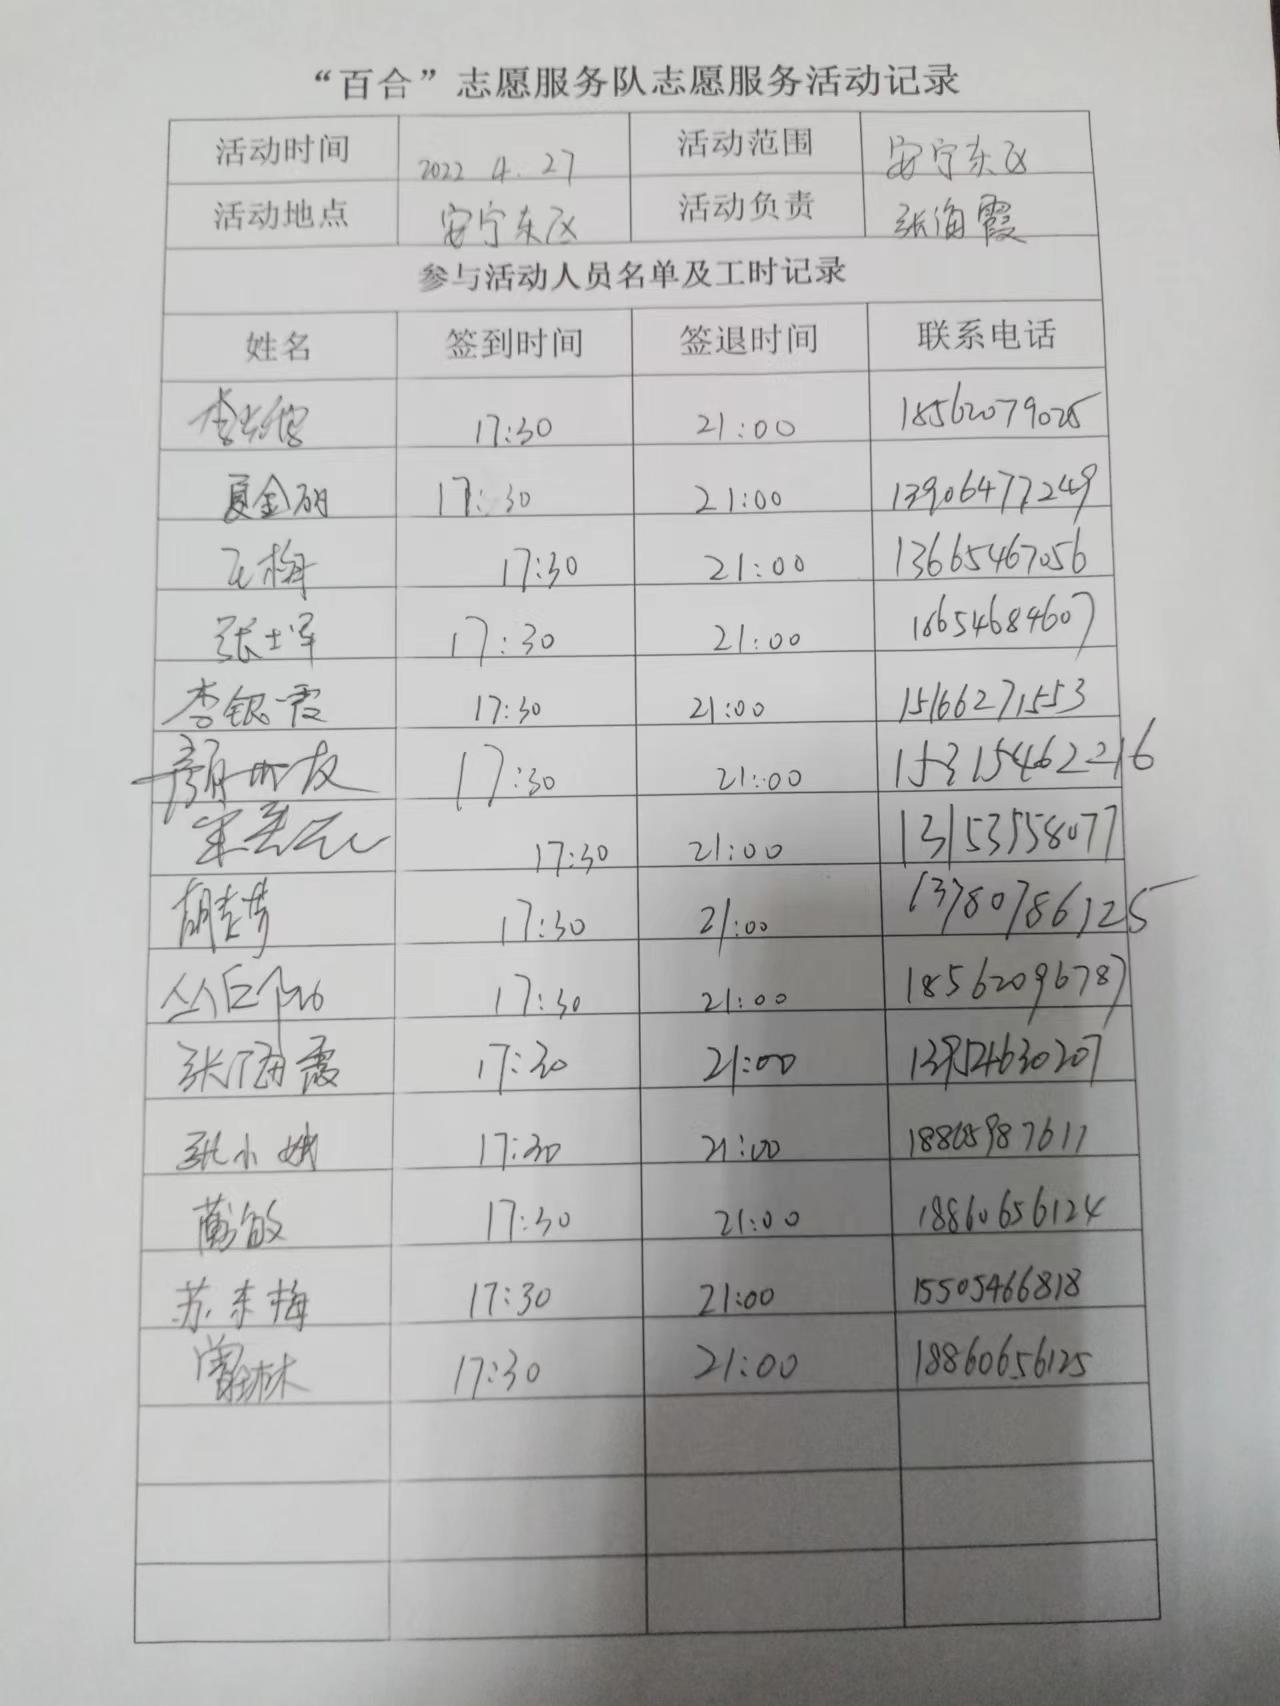 “百合”志愿服务队志愿服务活动记录
活动时间 2022 4.27 活动范围 安宁东区
活动地点 安宁东区 活动负责 张海霞
参与活动人员名单及工时记录
姓名 签到时间 签退时间 联系电话
17:30 21:00 18562079025
夏金 17:30 21:00 13906477249
梅 17:30 21:00 13665467056
张士军 17:30 21:00 18654684607
李银霞 17:30 21:00 15166271553
颜世友 17:30 21:00 15315462216
17:30 21:00 13153558077
胡芳 17:30 21:00 13780786125
丛巨 17:30 21:00 18562096787
张海霞 17:30 21:00 13954630207
张小娥 17:30 21:00 7611
敏 17:30 21:00 18860656124
苏东梅 17:30 21:00 15505466818
林 17:30 21:00 18860656125